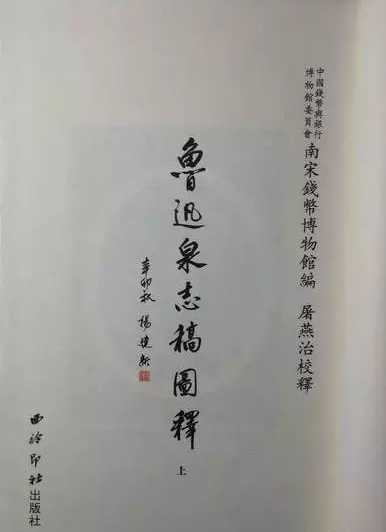 中國錢幣與銀行
博物館委員會
南宋錢幣博物館編 屠燕治校釋
魯迅泉志稿圖釋
上
辛卯秋 楊建新
西泠印社出版社